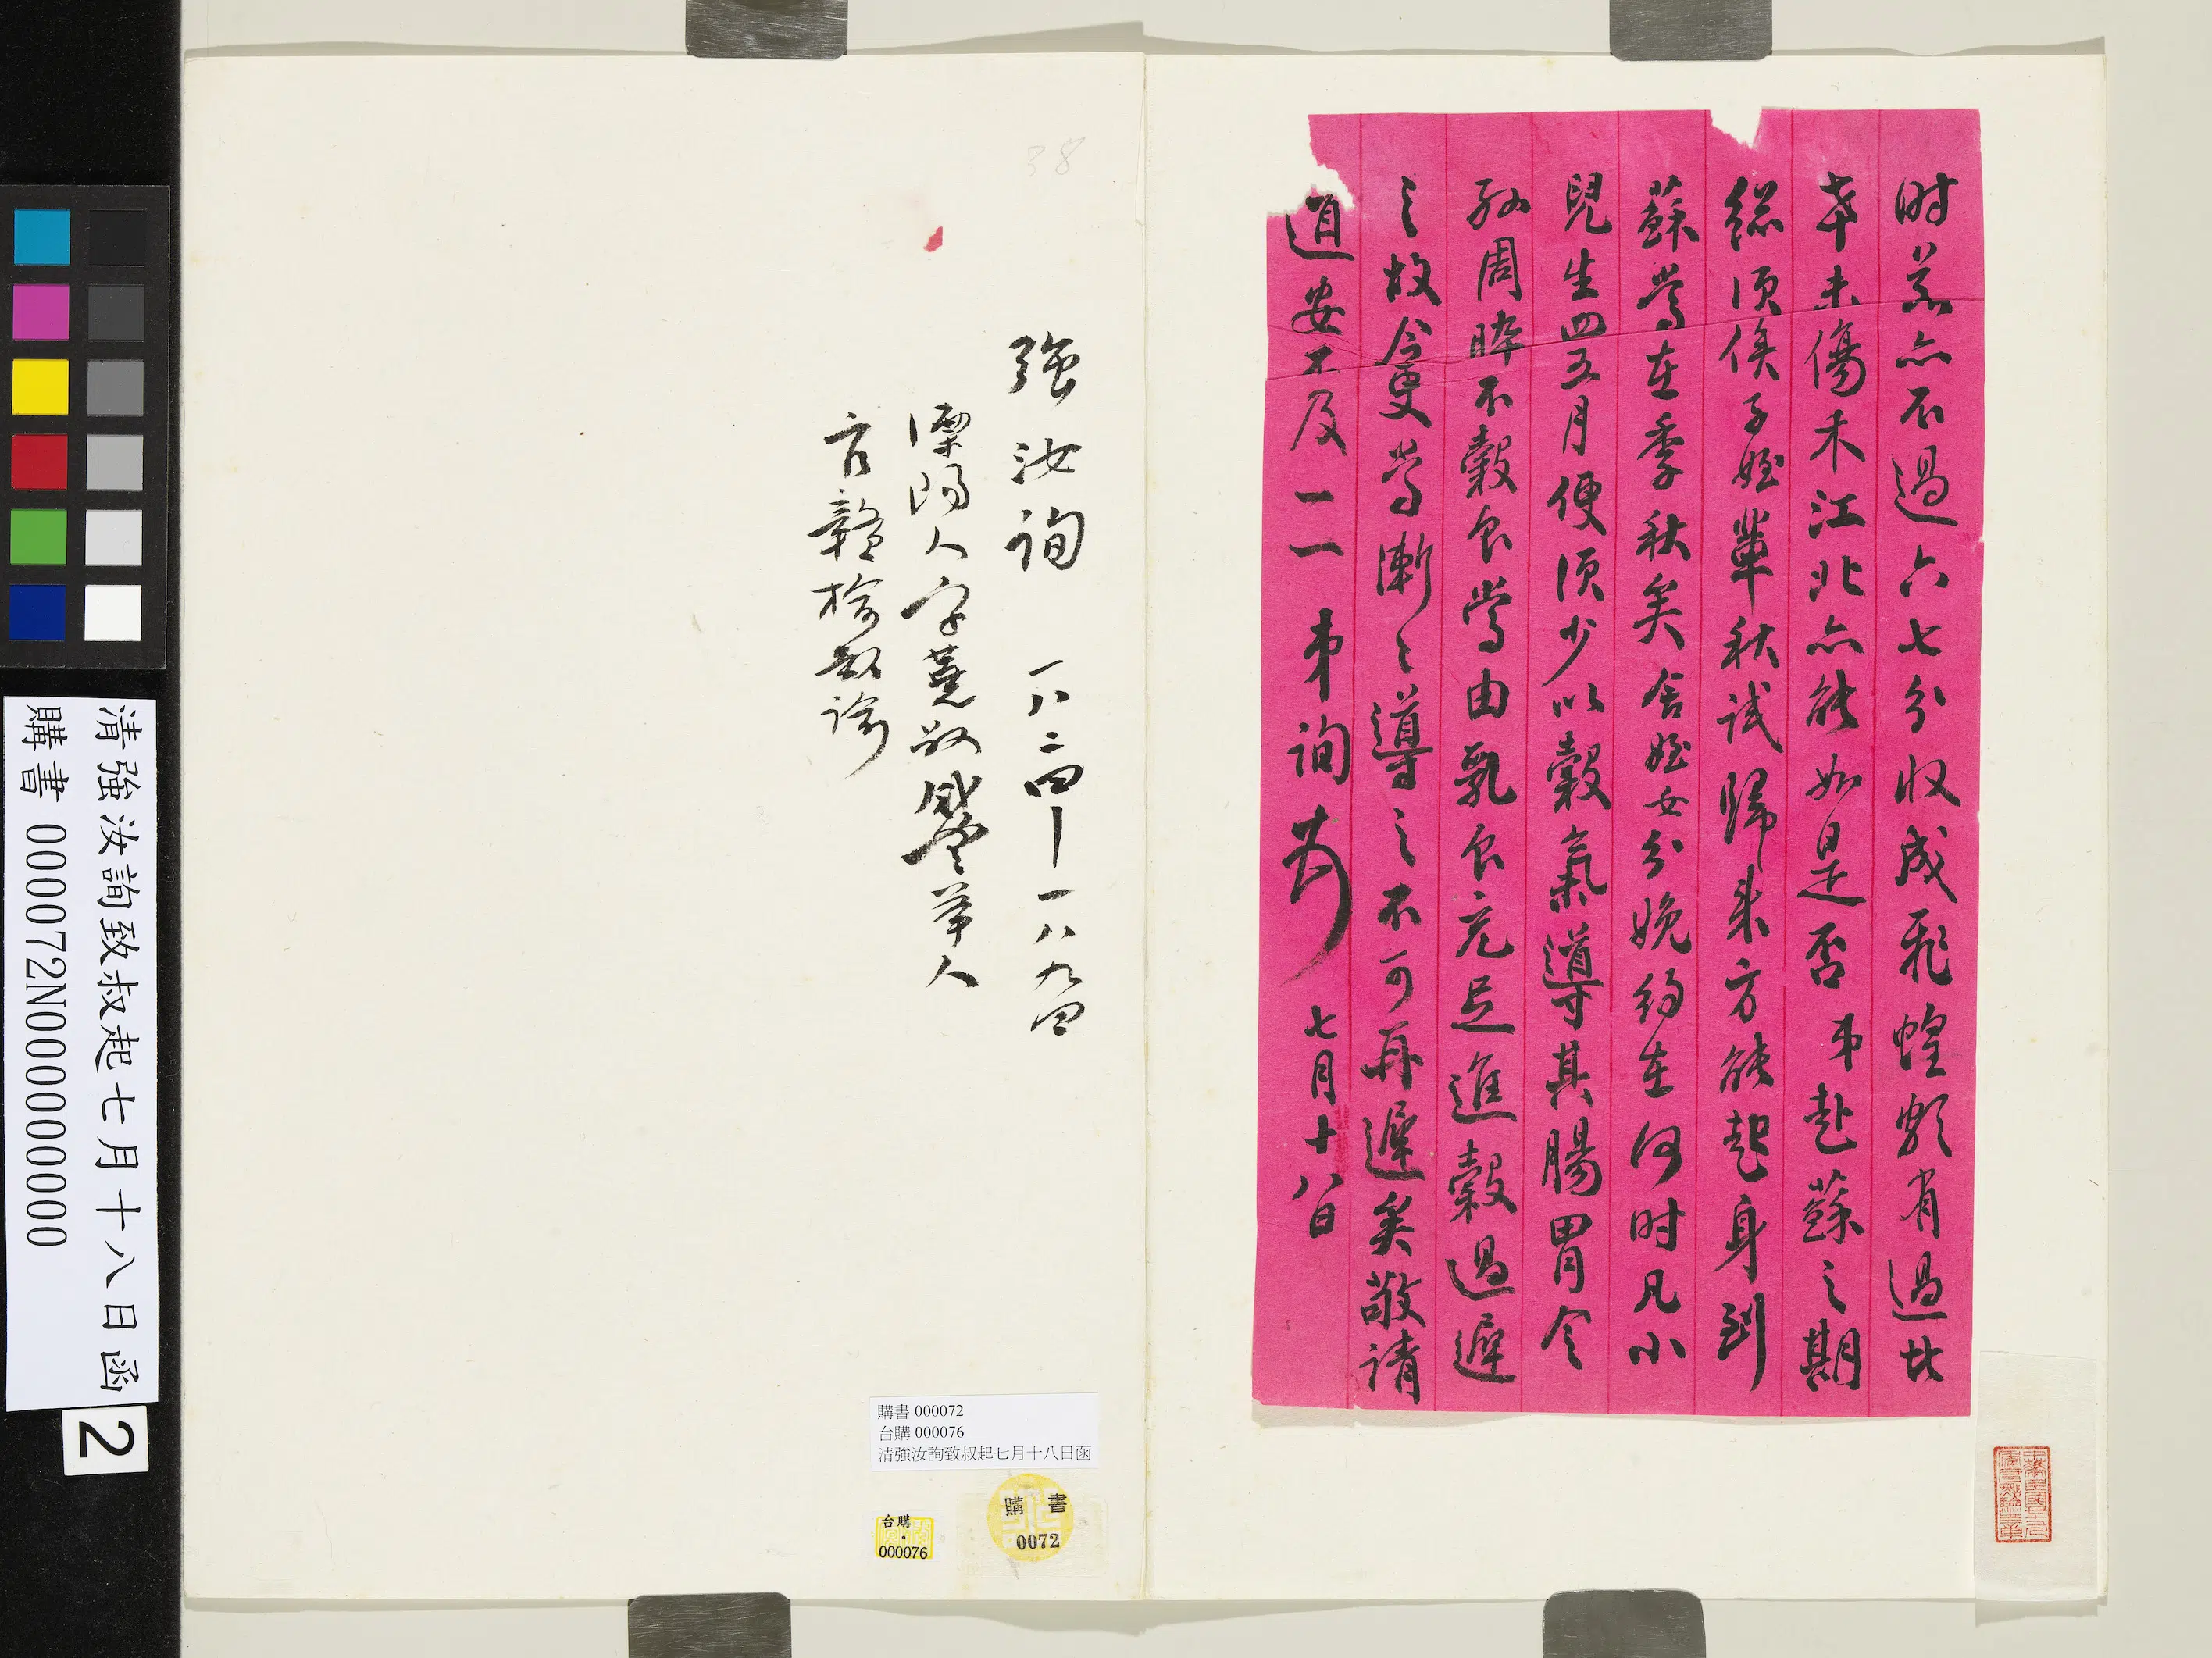 时荒亦不過六七分收成飛蝗颇有過此
者未傷禾江北亦能如是否弟赴蘇之期
總須俟子姪輩秋試歸来方能起身到
蘇當在季秋矣舍姪女分娩約在何时凡小
兒生四五月便須少以穀氣導其腸胃令
孫周晬不穀食當由乳食充足進穀過遲
之故今更當漸〻導之不可再遲矣敬請
道安不及一一 弟詢 七月十八日
強汝詢 一八二四—一八九四
溧陽人字蕘叔咸豐举人
官贛榆教諭
38
購書 000072
台購 000076
清強汝詢致叔起七月十八日函
購書
0072
台購
000076
清強汝詢致叔起七月十八日函
購書 000072N000000000
2